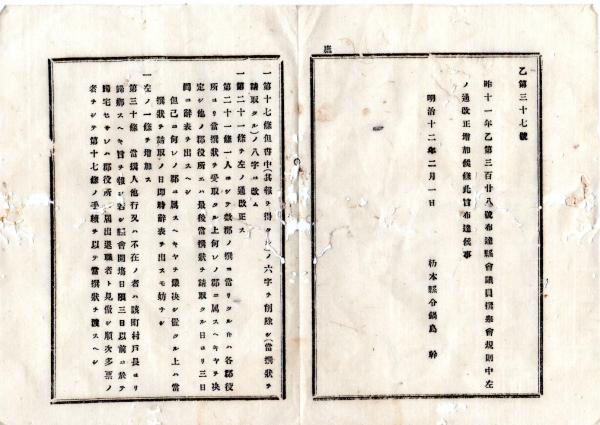 乙第三十七號
昨十一年乙第三百廿八號布達縣會議員撰擧會規則中左
ノ通改正増加候條此旨布達候事
明治十二年二月一日
栃木縣令鍋島幹
一第十七條但書中(其報ヲ得タル)ノ六字ヲ削除シ(當撰狀ヲ
請取タル)ノ八字ニ改ム
一第二十一條ヲ左ノ通改正ス
第二十一條一人ニシテ數郡ノ撰ニ當リタル片ハ各郡役
所ヨリ當撰狀ヲ受取タル上何レノ郡ニ属スヘキヤヲ决
定シ他ノ郡役所エハ最後當撰狀ヲ請取タル日ヨリ三日
間ニ辭表ヲ出スヘシ
但己ニ何レノ郡ニ属スヘキヤヲ議决シ置タル上ハ當
撰狀ヲ請取ノ日即時辭表ヲ出スモ妨ナシ
一左ノ一條ヲ増加ス
第三十條 當撰人他行又ハ不在ノ者ハ該町村戸長ヨリ
歸鄕スヘキ旨ヲ報シ若シ縣會開塲日限三日以前ニ於テ
歸宅セサレハ郡役所ニ届出退職者ト見做シ順次多票ノ
者ヲシテ第十七條ノ手續ヲ以テ當撰狀ヲ渡スヘシ